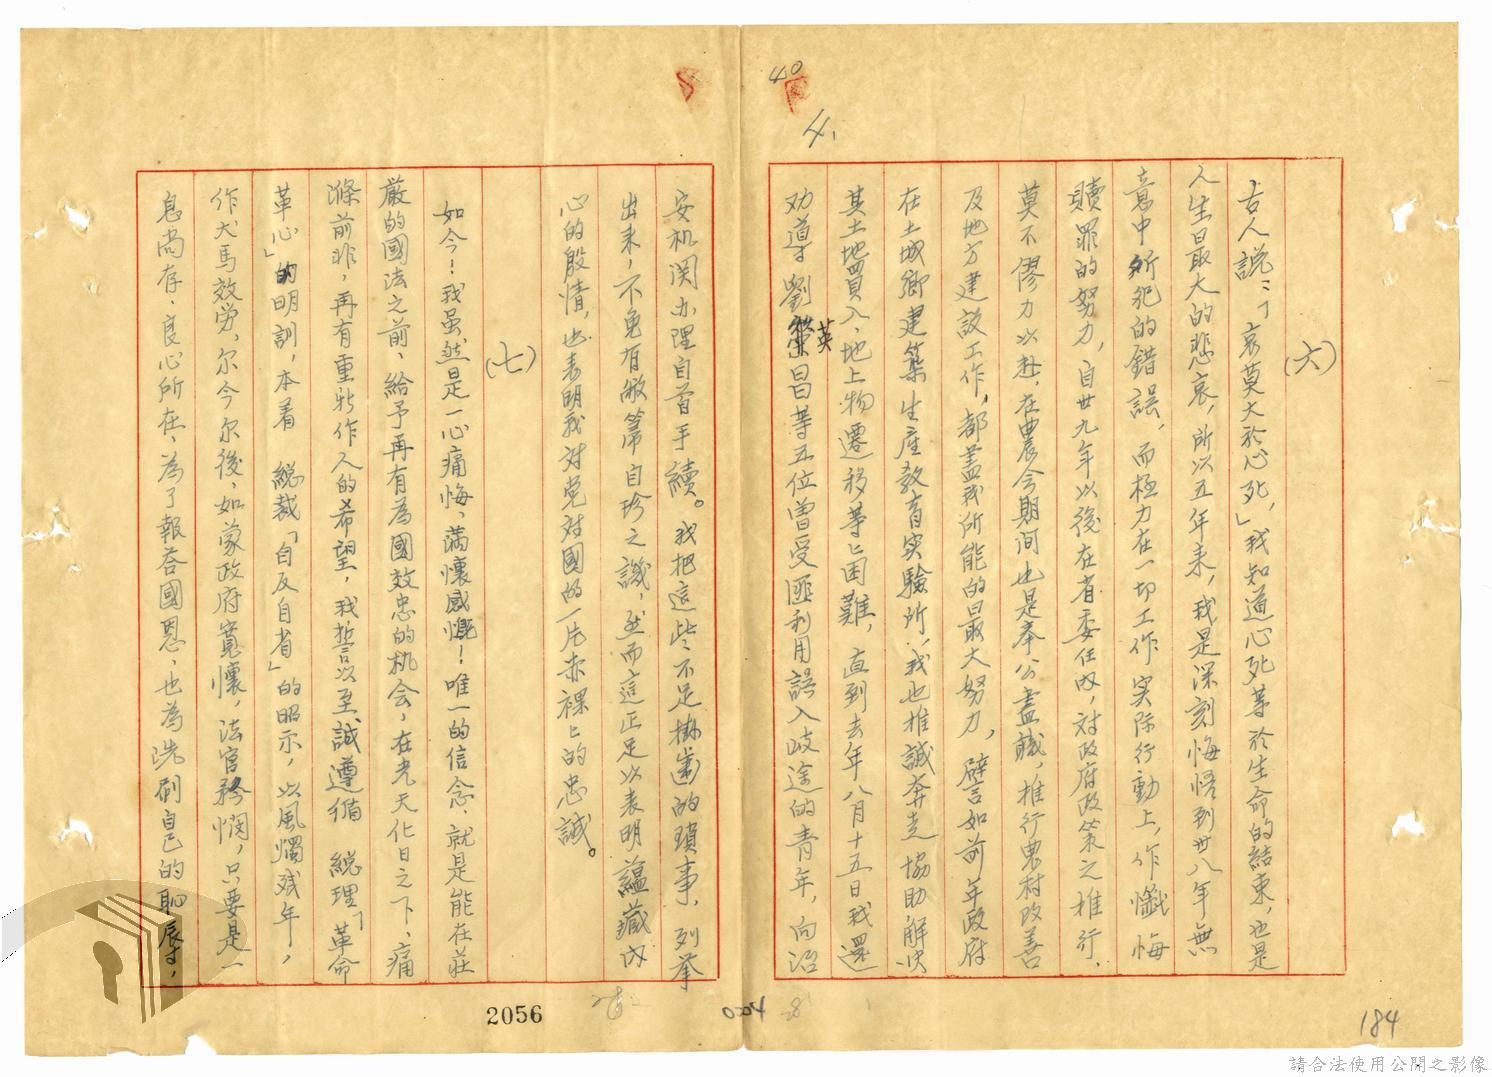 40
4.
(六)
古人説：「哀莫大於心死，」我知道心死等於生命的結束，也是
人生最大的悲哀，所以五年来，我是深刻悔悟到卅八年無
意中所犯的錯誤，而極力在一切工作实际行動上，作懺悔
贖罪的努力，自卅九年以後在省委任內，対政府政策之推行，
莫不僇力以赴，在農会期间也是奉公盡職，推行農村改善
及地方建設工作，都盖我所能的最大努力，譬如前年政府
在土城鄉建築生産教育实驗所，我也推誠奔走協助解決
其土地買入、地上物遷移等上困難，直到去年八月十五日我還
劝導劉英昌等五位曽受匪利用誤入歧途的青年，向治
安机関办理自首手續。我把這些不足掛齒的瑣事，列挙
出来，不免有敝箒自珍之譏，然而這正足以表明蘊藏内
心的殷情，也表明我対党対國的一片赤裸上的忠誠。
(七)
如今！我虽然是一心痛悔，满懷感慨！唯一的信念，就是能在莊
厳的國法之前，給予再有為國效忠的机会，在光天化日之下，痛
滌前非，再有重新作人的希望，我誓以至誠遵循　総理「革命
革心」的明訓，本着　総裁「自反自省」的昭示，以風燭残年，
作犬馬效労，尔今尔後，如蒙政府寬懷，法官矜憫，只要是一
息尚存，良心所在，為了報答國恩，也為洗刷自己的恥辱，
2056
184
請合法使用公開之影像